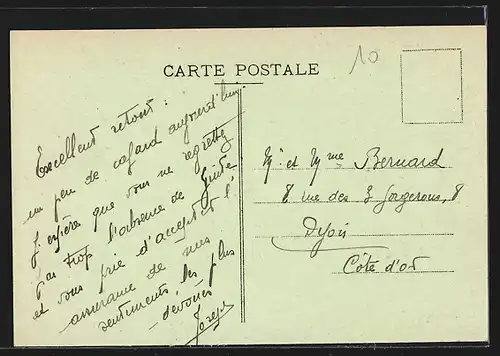 10
CARTE POSTALE
Excellent retour :
un peu de cafard aujourd'hui
J'espère que vous ne regrettez
pas trop l'absence de
et vous prie d'accepter l'
assurance de mes
sentiments les plus
dévoués
Mr et Mme Bernard
8 rue des 3 forgerons, 8
Dijon
Côte d'or